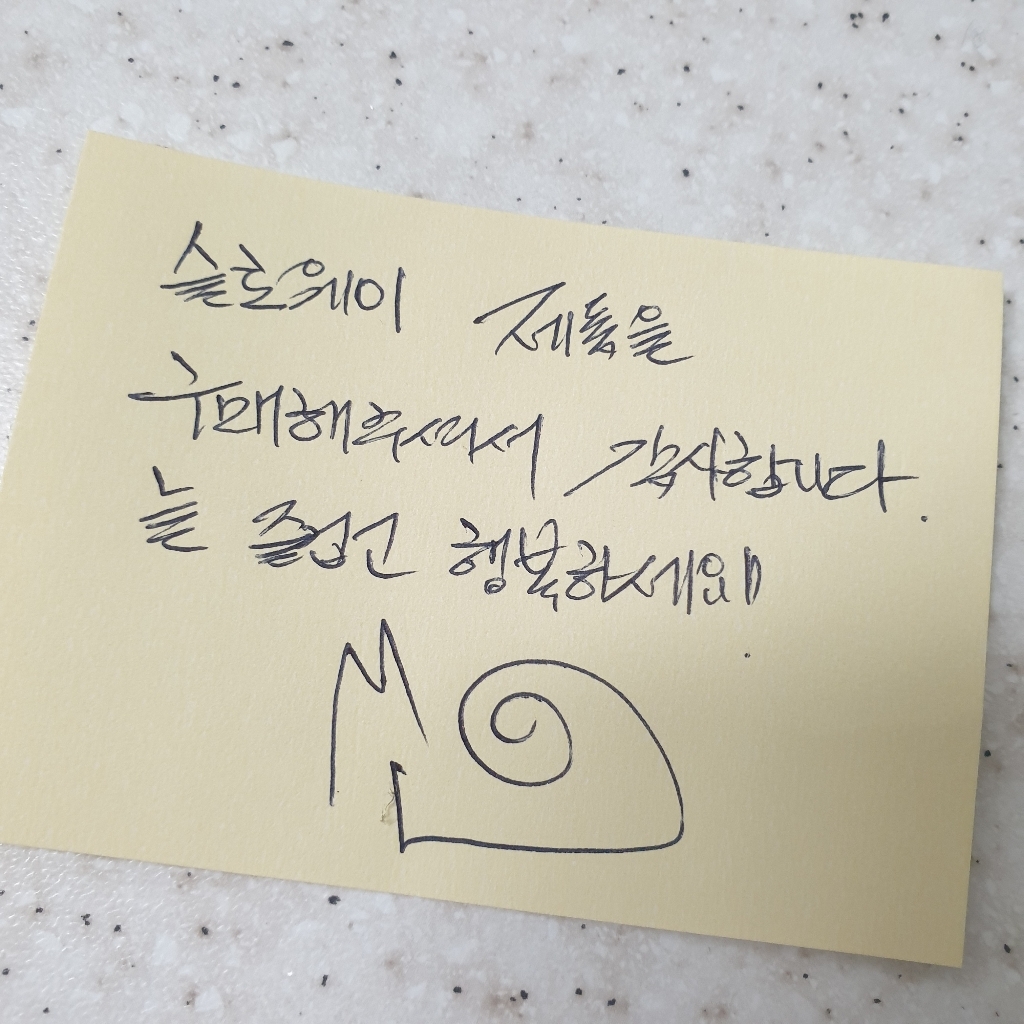 슬로웨이 제품을
구매해주셔서 감사합니다.
늘 즐겁고 행복하세요!